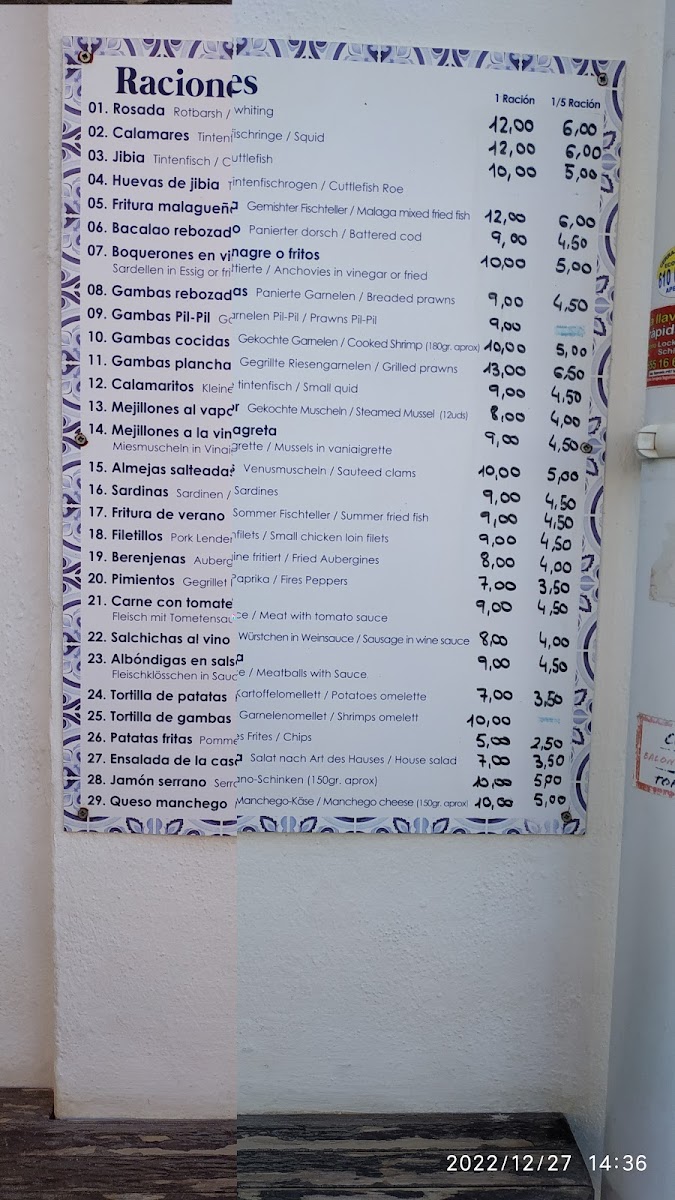 Raciones
1 Ración 1/5 Ración
01. Rosada Rotbarsh / whiting 12,00 6,00
02. Calamares Tintenfischringe / Squid 12,00 6,00
03. Jibia Tintenfisch / Cuttlefish 10,00 5,00
04. Huevas de jibia Tintenfischrogen / Cuttlefish Roe
05. Fritura malagueña Gemishter Fischteller / Malaga mixed fried fish 12,00 6,00
06. Bacalao rebozado Panierter dorsch / Battered cod 9,00 4,50
07. Boquerones en vinagre o fritos 10,00 5,00
Sardellen in Essig or frittierte / Anchovies in vinegar or fried
08. Gambas rebozadas Panierte Garnelen / Breaded prawns 9,00 4,50
09. Gambas Pil-Pil Garnelen Pil-Pil / Prawns Pil-Pil 9,00
10. Gambas cocidas Gekochte Garnelen / Cooked Shrimp (180gr. aprox) 10,00 5,00
11. Gambas plancha Gegrillte Riesengarnelen / Grilled prawns 13,00 6,50
12. Calamaritos Kleine tintenfisch / Small quid 9,00 4,50
13. Mejillones al vapor Gekochte Muscheln / Steamed Mussel (12uds) 8,00 4,00
14. Mejillones a la vinagreta 9,00 4,50
Miesmuscheln in Vinaigrette / Mussels in vaniaigrette
15. Almejas salteadas Venusmuscheln / Sauteed clams 10,00 5,00
16. Sardinas Sardinen / Sardines 9,00 4,50
17. Fritura de verano Sommer Fischteller / Summer fried fish 9,00 4,50
18. Filetillos Pork Lendenfilets / Small chicken loin filets 9,00 4,50
19. Berenjenas Aubergine fritiert / Fried Aubergines 8,00 4,00
20. Pimientos Gegrillet Paprika / Fires Peppers 7,00 3,50
21. Carne con tomate 9,00 4,50
Fleisch mit Tometensauce / Meat with tomato sauce
22. Salchichas al vino Würstchen in Weinsauce / Sausage in wine sauce 8,00 4,00
23. Albóndigas en salsa 9,00 4,50
Fleischklösschen in Sauce / Meatballs with Sauce
24. Tortilla de patatas Kartoffelomellett / Potatoes omelette 7,00 3,50
25. Tortilla de gambas Garnelenomellet / Shrimps omelett 10,00
26. Patatas fritas Pommes Frites / Chips 5,00 2,50
27. Ensalada de la casa Salat nach Art des Hauses / House salad 7,00 3,50
28. Jamón serrano Serrano-Schinken (150gr. aprox) 10,00 5,00
29. Queso manchego Manchego-Käse / Manchego cheese (150gr. aprox) 10,00 5,00
2022/12/27 14:36